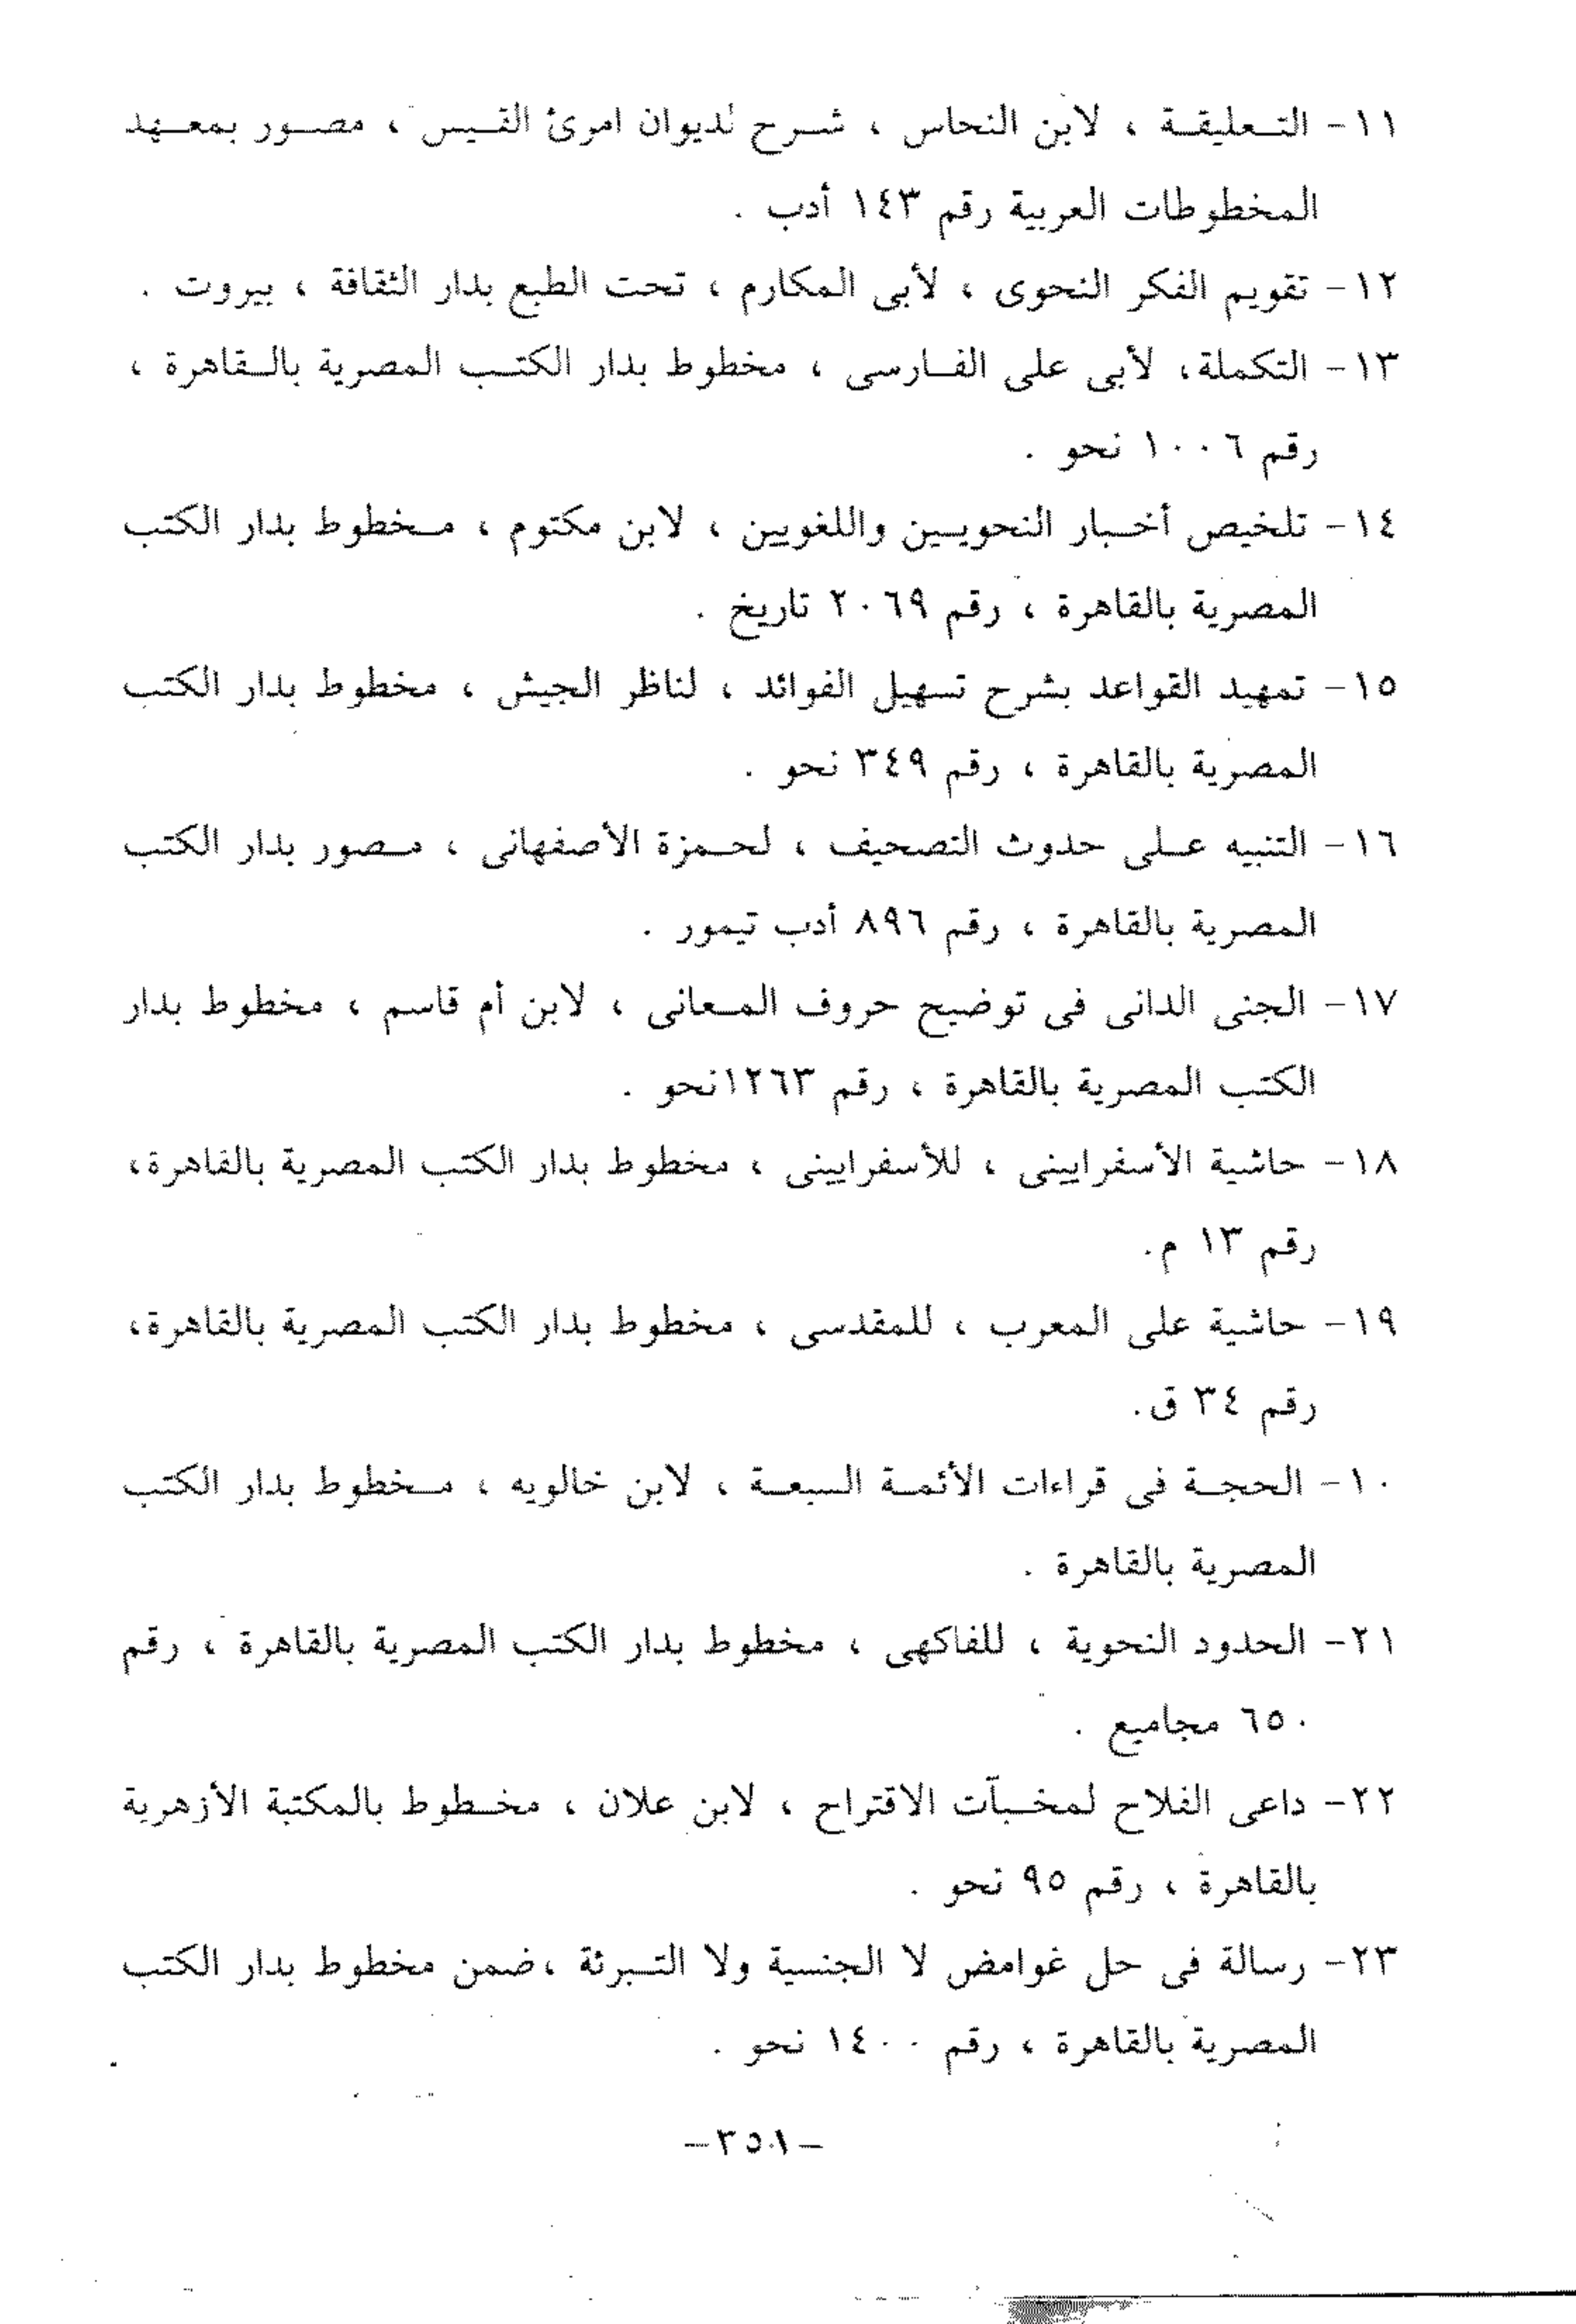 ١١- التعليقة ، لابن النحاس ، شرح لديوان امرئ القيس ، مصور بمعهد
المخطوطات العربية رقم ١٤٣ أدب .
١٢- تقويم الفكر النحوى ، لأبى المكارم ، تحت الطبع بدار الثقافة ، بيروت .
١٣- التكملة، لأبى على الفارسى ، مخطوط بدار الكتب المصرية بالقاهرة ،
رقم ١٠٠٦ نحو .
١٤- تلخيص أخبار النحويين واللغويين ، لابن مكتوم ، مخطوط بدار الكتب
المصرية بالقاهرة ، رقم ٢٠٦٩ تاريخ .
١٥- تمهيد القواعد بشرح تسهيل الفوائد ، لناظر الجيش ، مخطوط بدار الكتب
المصرية بالقاهرة ، رقم ٣٤٩ نحو .
١٦- التنبيه على حدوث التصحيف ، لحمزة الأصفهانى ، مصور بدار الكتب
المصرية بالقاهرة ، رقم ٨٩٦ أدب تيمور .
١٧- الجنى الدانى فى توضيح حروف المعانى ، لابن أم قاسم ، مخطوط بدار
الكتب المصرية بالقاهرة ، رقم ١٢٦٣نحو .
١٨- حاشية الأسفرايينى ، للأسفرايينى ، مخطوط بدار الكتب المصرية بالقاهرة،
رقم ١٣ م.
١٩- حاشية على المعرب ، للمقدسى ، مخطوط بدار الكتب المصرية بالقاهرة،
رقم ٣٤ ق.
١٠- الحجة فى قراءات الأئمة السبعة ، لابن خالويه ، مخطوط بدار الكتب
المصرية بالقاهرة .
٢١- الحدود النحوية ، للفاكهى ، مخطوط بدار الكتب المصرية بالقاهرة ، رقم
٦٥٠ مجاميع .
٢٢- داعى الفلاح لمخبآت الاقتراح ، لابن علان ، مخطوط بالمكتبة الأزهرية
بالقاهرة ، رقم ٩٥ نحو .
٢٣- رسالة فى حل غوامض لا الجنسية ولا التبرئة ،ضمن مخطوط بدار الكتب
المصرية بالقاهرة ، رقم ١٤٠٠ نحو .
-٣٥١-